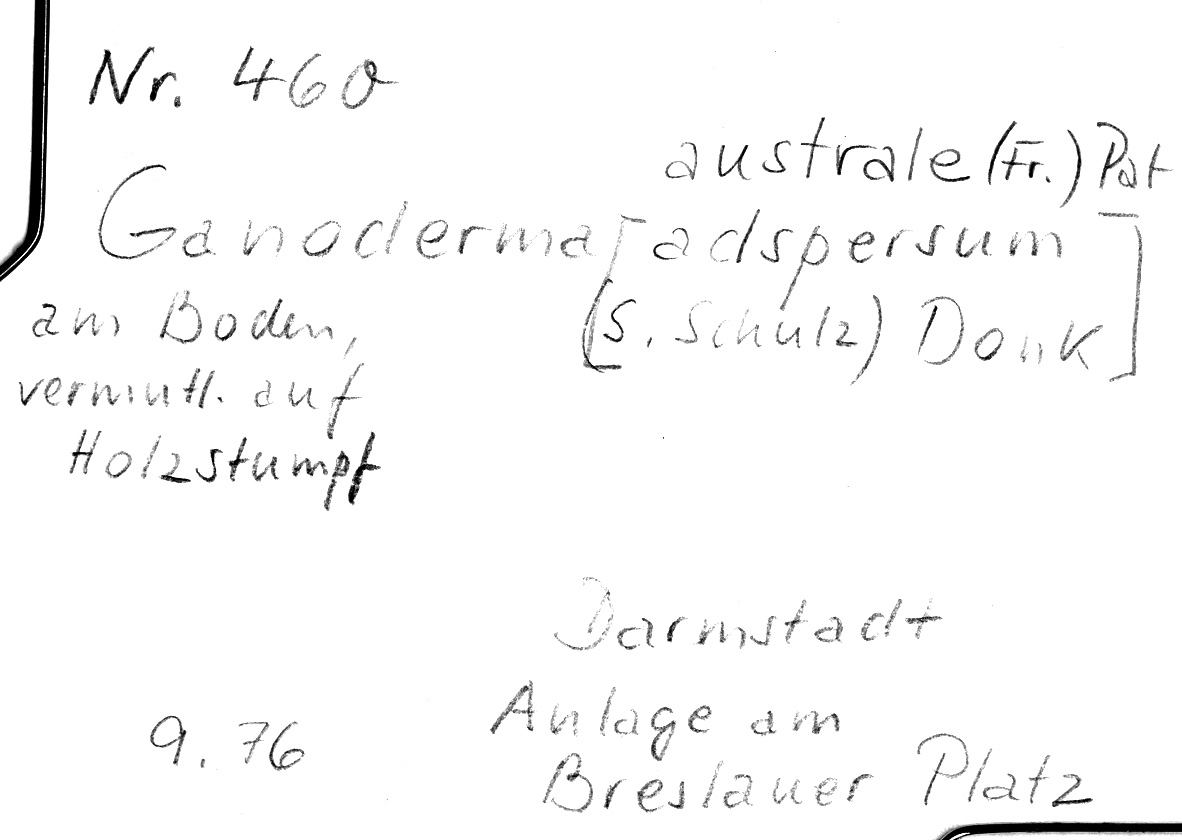 Nr. 460
australe (Fr.) Pat
Ganoderma [adspersum
(S. Schulz) Donk]
am Boden,
vermutl. auf
Holzstumpf
Darmstadt
Anlage am
9. 76
Breslauer Platz